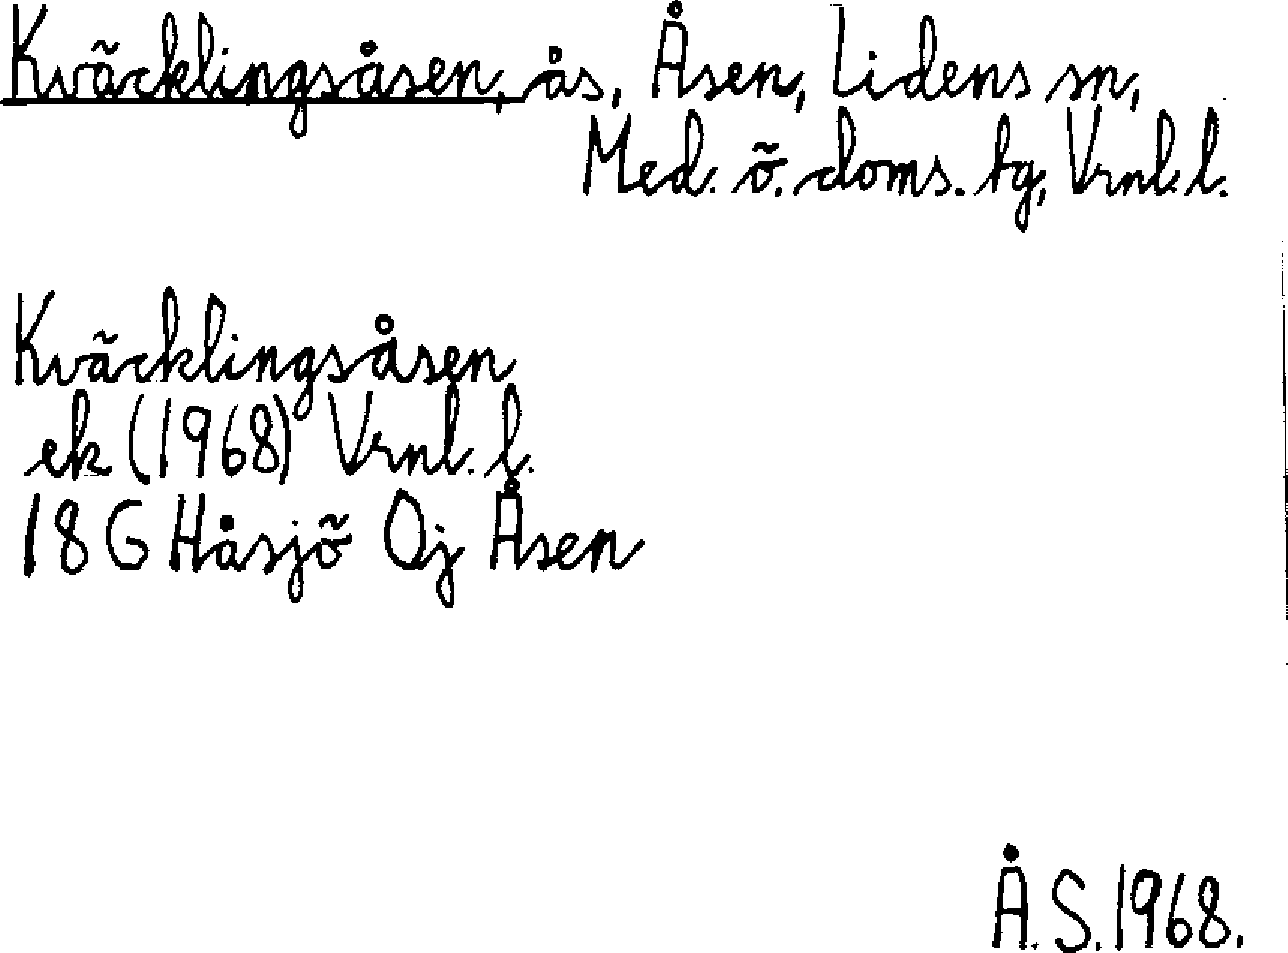 Kväcklingsåsen, ås, Åsen, Lidens sn,
Med. ö. doms. tg, Vrnl. l.
Kväcklingsåsen
ek (1968) Vrnl. l.
18 G Håsjö Oj Åsen
Å. S. 1968.